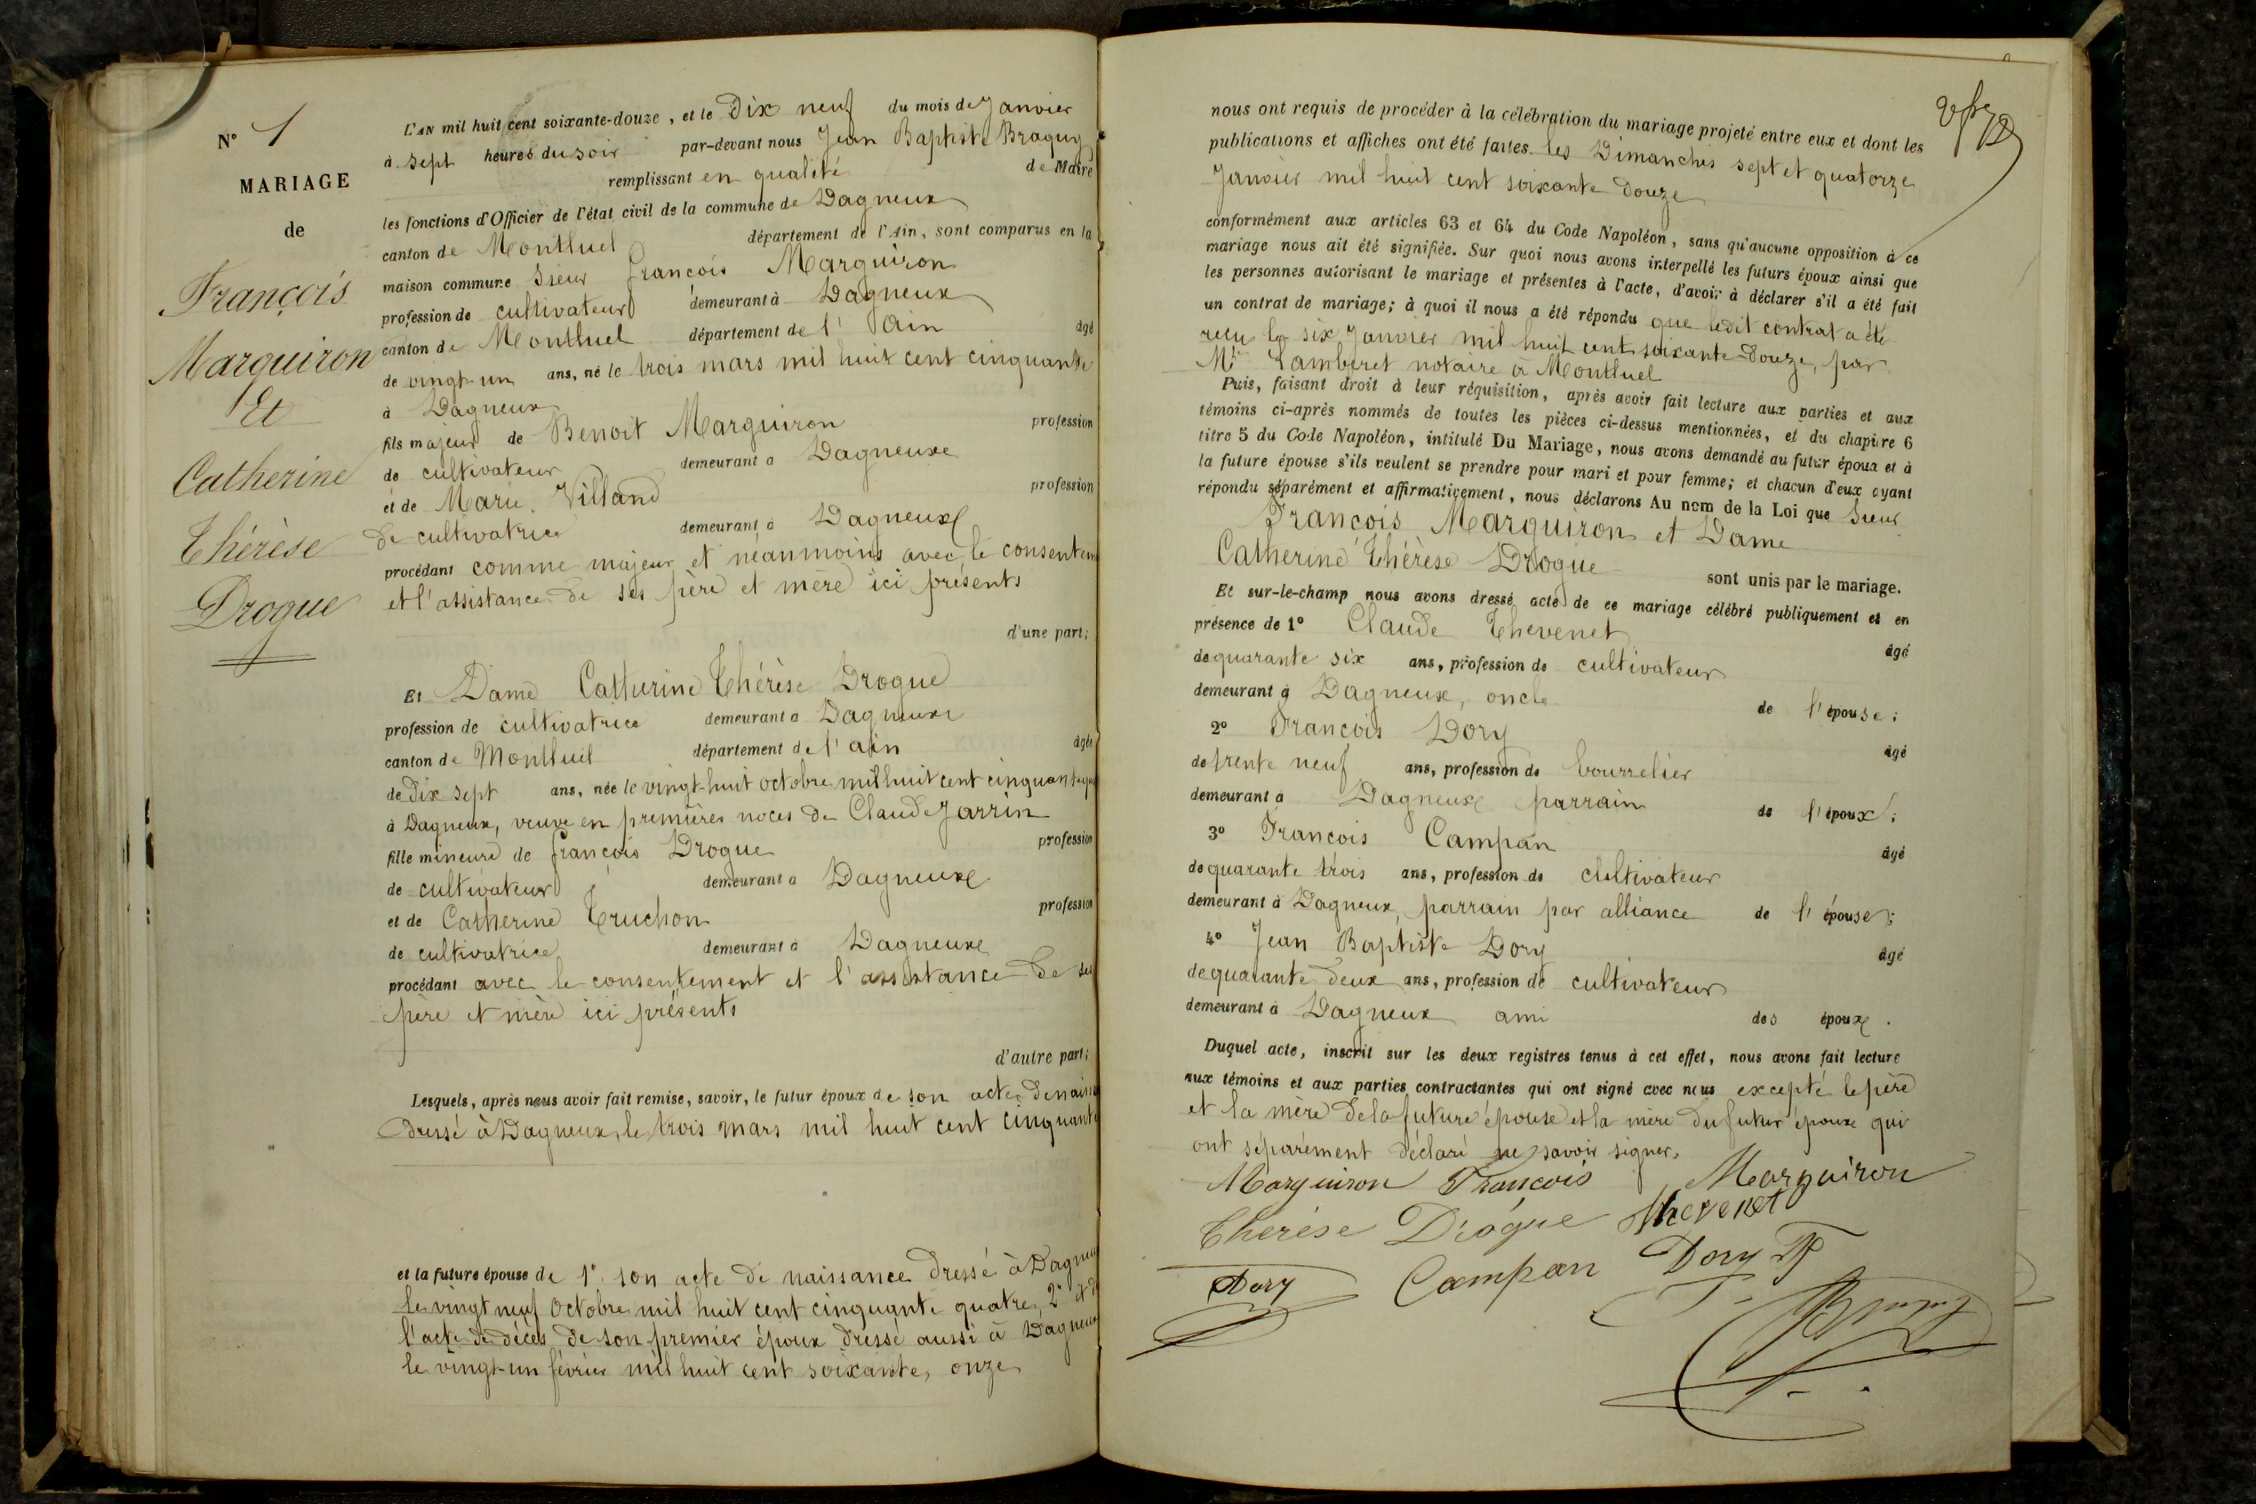 N° 1
MARIAGE
de
François
Marguiron
Et
Catherine
Thérèse
Drogue
L'AN mil huit cent soixante-douze, et le Dix neuf du mois de Janvier
à sept heures du soir par-devant nous Jean Baptiste Braguy
remplissant en qualité de Maire
les fonctions d'Officier de l'état civil de la commune de Dagneux
canton de Montluel département de l'Ain, sont comparus en la
maison commune Sieur François Marguiron
profession de cultivateur demeurant à Dagneux
canton de Montluel département de l'Ain âgé
de vingt-un ans, né le trois mars mil huit cent cinquante
à Dagneux
fils majeur de Benoit Marguiron profession
de cultivateur demeurant a Dagneux
et de Marie Villand profession
de cultivatrice demeurant à Dagneux
procédant comme majeur et néanmoins avec le consentem
et l'assistance de ses père et mère ici présents
d'une part;
Et Dame Catherine Thérèse Drogue
profession de cultivatrice demeurant a Dagneux
canton de Montluel département de l'ain âgée
de Dix sept ans, née le vingt-huit octobre mil huit cent cinquante
à Dagneux, veuve en premières noces de Claude Jarrin
fille mineure de françois Drogue profession
de cultivateur demeurant a Dagneux
et de Catherine Truchon profession
de cultivatrice demeurant à Dagneux
procédant avec le consentement et l'assistance de ses
père et mère ici présents
d'autre part;
Lesquels, après nous avoir fait remise, savoir, le futur époux de son acte de naiss
dressé à Dagneux le trois mars mil huit cent cinquante
et la future épouse de 1° son acte de naissance dressé à Dagneu
le vingt neuf Octobre mil huit cent cinquante quatre, 2° et de
l'acte de décès de son premier époux dressé aussi à Dagneux
le vingt-un février mil huit cent soixante, onze
nous ont requis de procéder à la célébration du mariage projeté entre eux et dont les
publications et affiches ont été faites les Dimanches sept et quatorze
Janvier mil huit cent soixante douze
conformément aux articles 63 et 64 du Code Napoléon, sans qu'aucune opposition à ce
mariage nous ait été signifiée. Sur quoi nous avons interpellé les futurs époux ainsi que
les personnes autorisant le mariage et présentes à l'acte, d'avoir à déclarer s'il a été fait
un contrat de mariage; à quoi il nous a été répondu que ledit contrat a été
reçu le six Janvier mil huit cent soixante-douze, par
Me Lamberet notaire à Montluel
Puis, faisant droit à leur réquisition, après avoir fait lecture aux parties et aux
témoins ci-après nommés de toutes les pièces ci-dessus mentionnées, et du chapitre 6
titre 5 du Code Napoléon, intitulé Du Mariage, nous avons demandé au futur époux et à
la future épouse s'ils veulent se prendre pour mari et pour femme; et chacun d'eux ayant
répondu séparément et affirmativement, nous déclarons Au nom de la Loi que Sieur
François Marguiron et Dame
Catherine Thérèse Drogue sont unis par le mariage.
Et sur-le-champ nous avons dressé acte de ce mariage célébré publiquement et en
présence de 1° Claude Thevenet âgé
de quarante six ans, profession de cultivateur
demeurant à Dagneux, oncle de l'épouse;
2° François Dory âgé
de trente neuf ans, profession de bourrelier
demeurant a Dagneux parrain de l'époux;
3° François Campan âgé
de quarante trois ans, profession de cultivateur
demeurant à Dagneux, parrain par alliance de l'épouse;
4° Jean Baptiste Dory âgé
de quarante deux ans, profession de cultivateur
demeurant à Dagneux ami des époux.
Duquel acte, inscrit sur les deux registres tenus à cet effet, nous avons fait lecture
aux témoins et aux parties contractantes qui ont signé avec nous excepté le père
et la mère de la future épouse et la mère du futur époux qui
ont séparément déclaré ne savoir signer.
Marguiron François Marguiron
Thérèse Drogue Thevenet
Dory Campan Dory